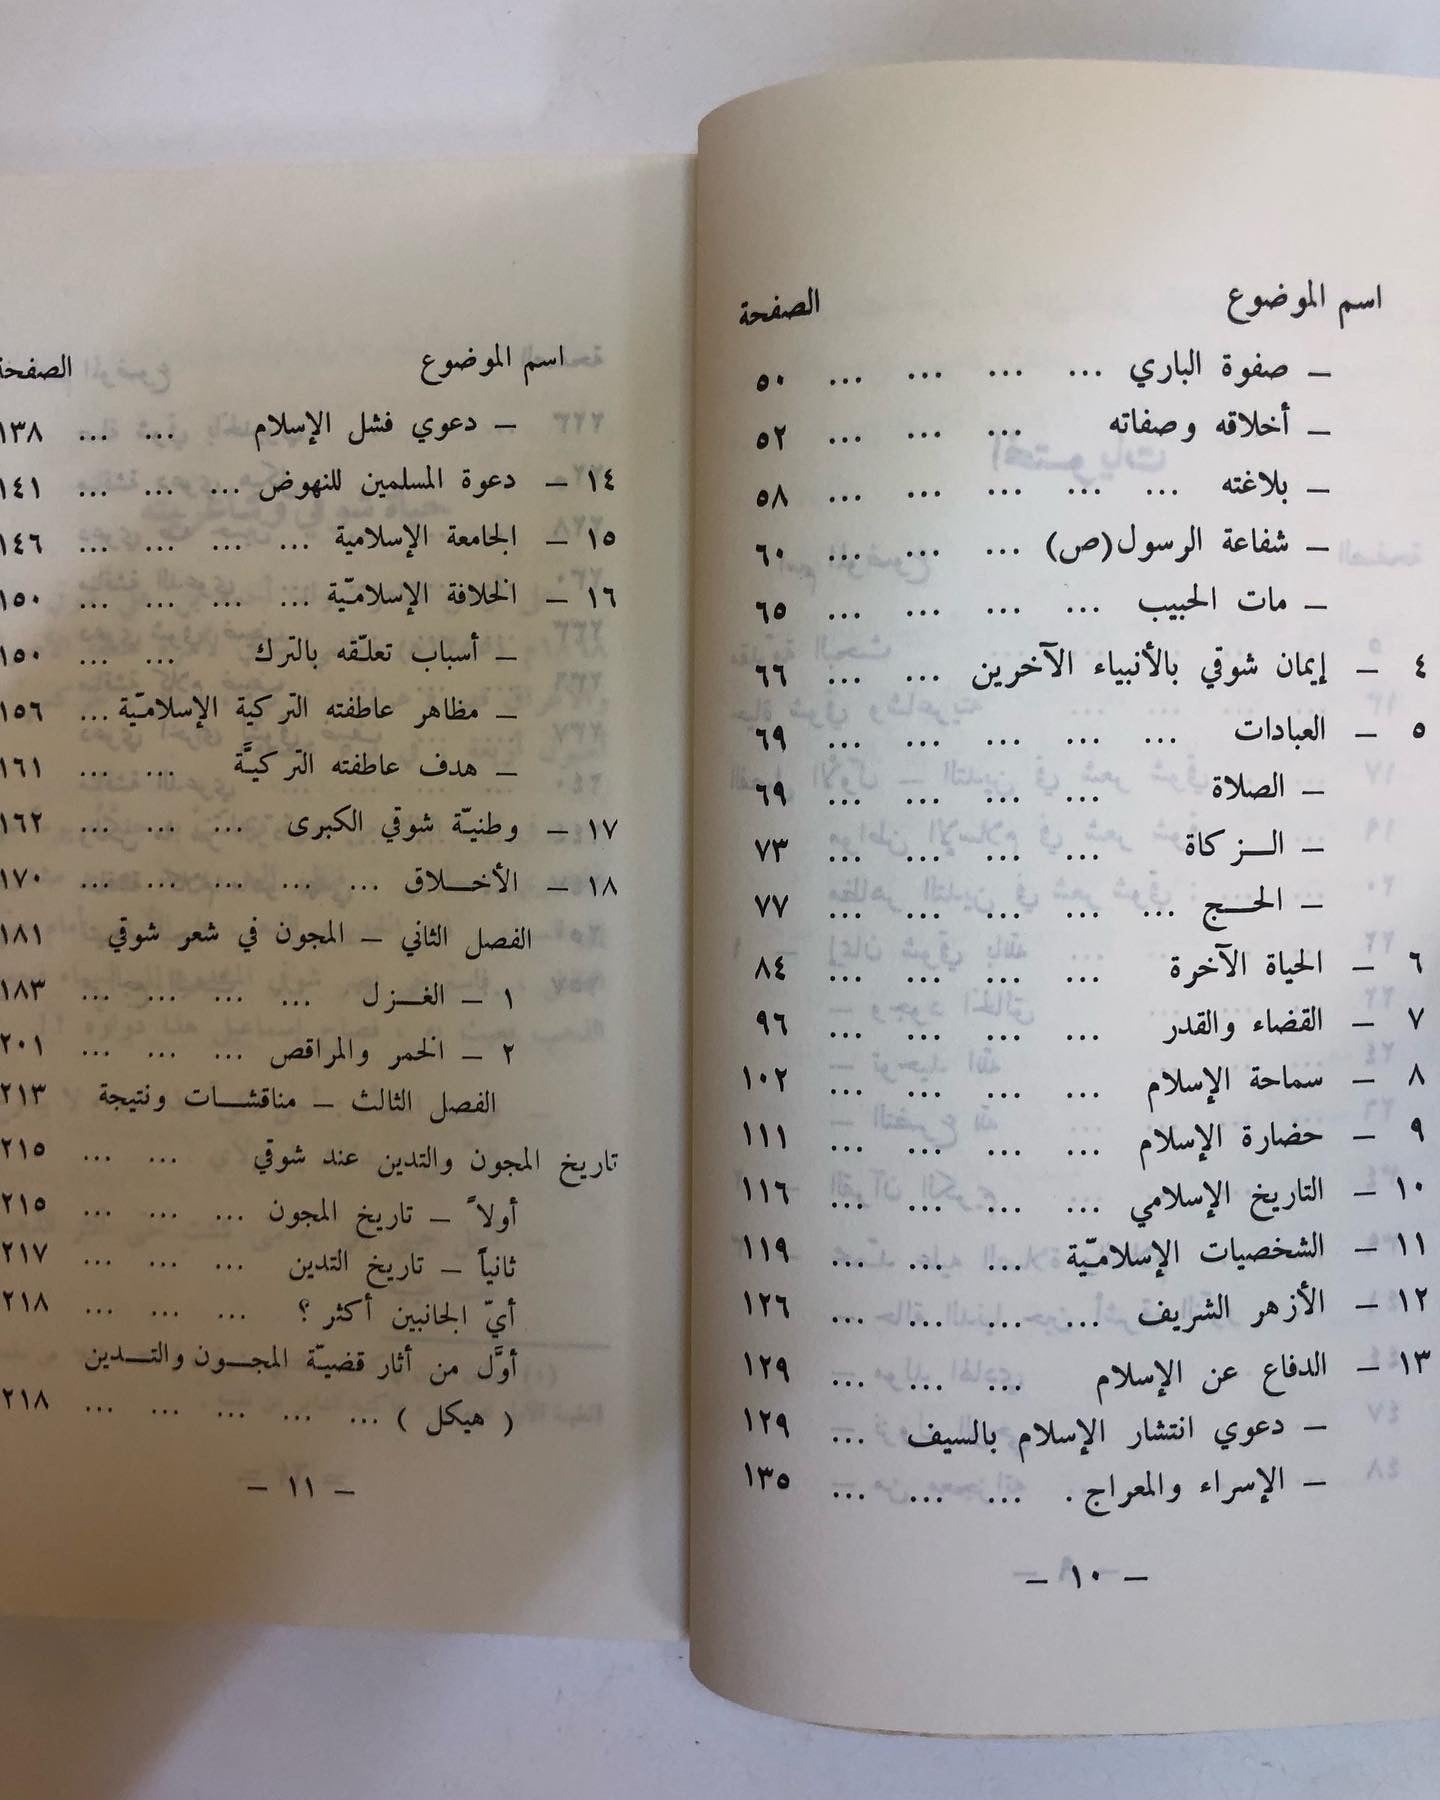 اسم الموضوع الصفحة
— صفوة الباري ... ... ... ... ٥٠
— أخلاقه وصفاته ... ... ... ٥٢
— بلاغته ... ... ... ... ... ٥٨
— شفاعة الرسول (ص) ... ... ... ٦٠
— مات الحبيب ... ... ... ... ٦٥
٤ — إيمان شوقي بالأنبياء الآخرين ... ... ٦٦
٥ — العبادات ... ... ... ... ... ٦٩
— الصلاة ... ... ... ... ٦٩
— الـزكاة ... ... ... ... ٧٣
— الحـج ... ... ... ... ... ٧٧
٦ — الحياة الآخرة ... ... ... ... ٨٤
٧ — القضاء والقدر ... ... ... ... ٩٦
٨ — سماحة الإسلام ... ... ... ... ١٠٢
٩ — حضارة الإسلام ... ... ... ... ١١١
١٠ — التاريخ الإسلامي ... ... ... ... ١١٦
١١ — الشخصيات الإسلاميّة ... ... ... ١١٩
١٢ — الأزهر الشريف ... ... ... ... ١٢٦
١٣ — الدفاع عن الإسلام ... ... ... ١٢٩
— دعوي انتشار الإسلام بالسيف ... ١٢٩
— الإسراء والمعراج . ... ... ... ١٣٥
— ١٠ —
اسم الموضوع الصفحة
— دعوي فشل الإسلام ... ... ١٣٨
١٤ — دعوة المسلمين للنهوض ... ... ... ١٤١
١٥ — الجامعة الإسلامية ... ... ... ... ١٤٦
١٦ — الخلافة الإسلاميّة ... ... ... ... ١٥٠
— أسباب تعلّقه بالترك ... ... ١٥٠
— مظاهر عاطفته التركية الإسلاميّة ... ١٥٦
— هدف عاطفته التركيَّة ... ... ١٦١
١٧ — وطنيّة شوقي الكبرى ... ... ... ١٦٢
١٨ — الأخـلاق ... ... ... ... ... ١٧٠
الفصل الثاني — المجون في شعر شوقي ١٨١
١ — الغـزل ... ... ... ... ١٨٣
٢ — الخمر والمراقص ... ... ... ٢٠١
الفصل الثالث — مناقشـات ونتيجة ٢١٣
تاريخ المجون والتدين عند شوقي ... ... ٢١٥
أولاً — تاريخ المجون ... ... ... ٢١٥
ثانياً — تاريخ التدين ... ... ... ٢١٧
أيّ الجانبين أكثر ؟ ... ... ... ٢١٨
أوَّل من أثار قضيّة المجـون والتـدين
( هيكل ) ... ... ... ... ... ٢١٨
— ١١ —